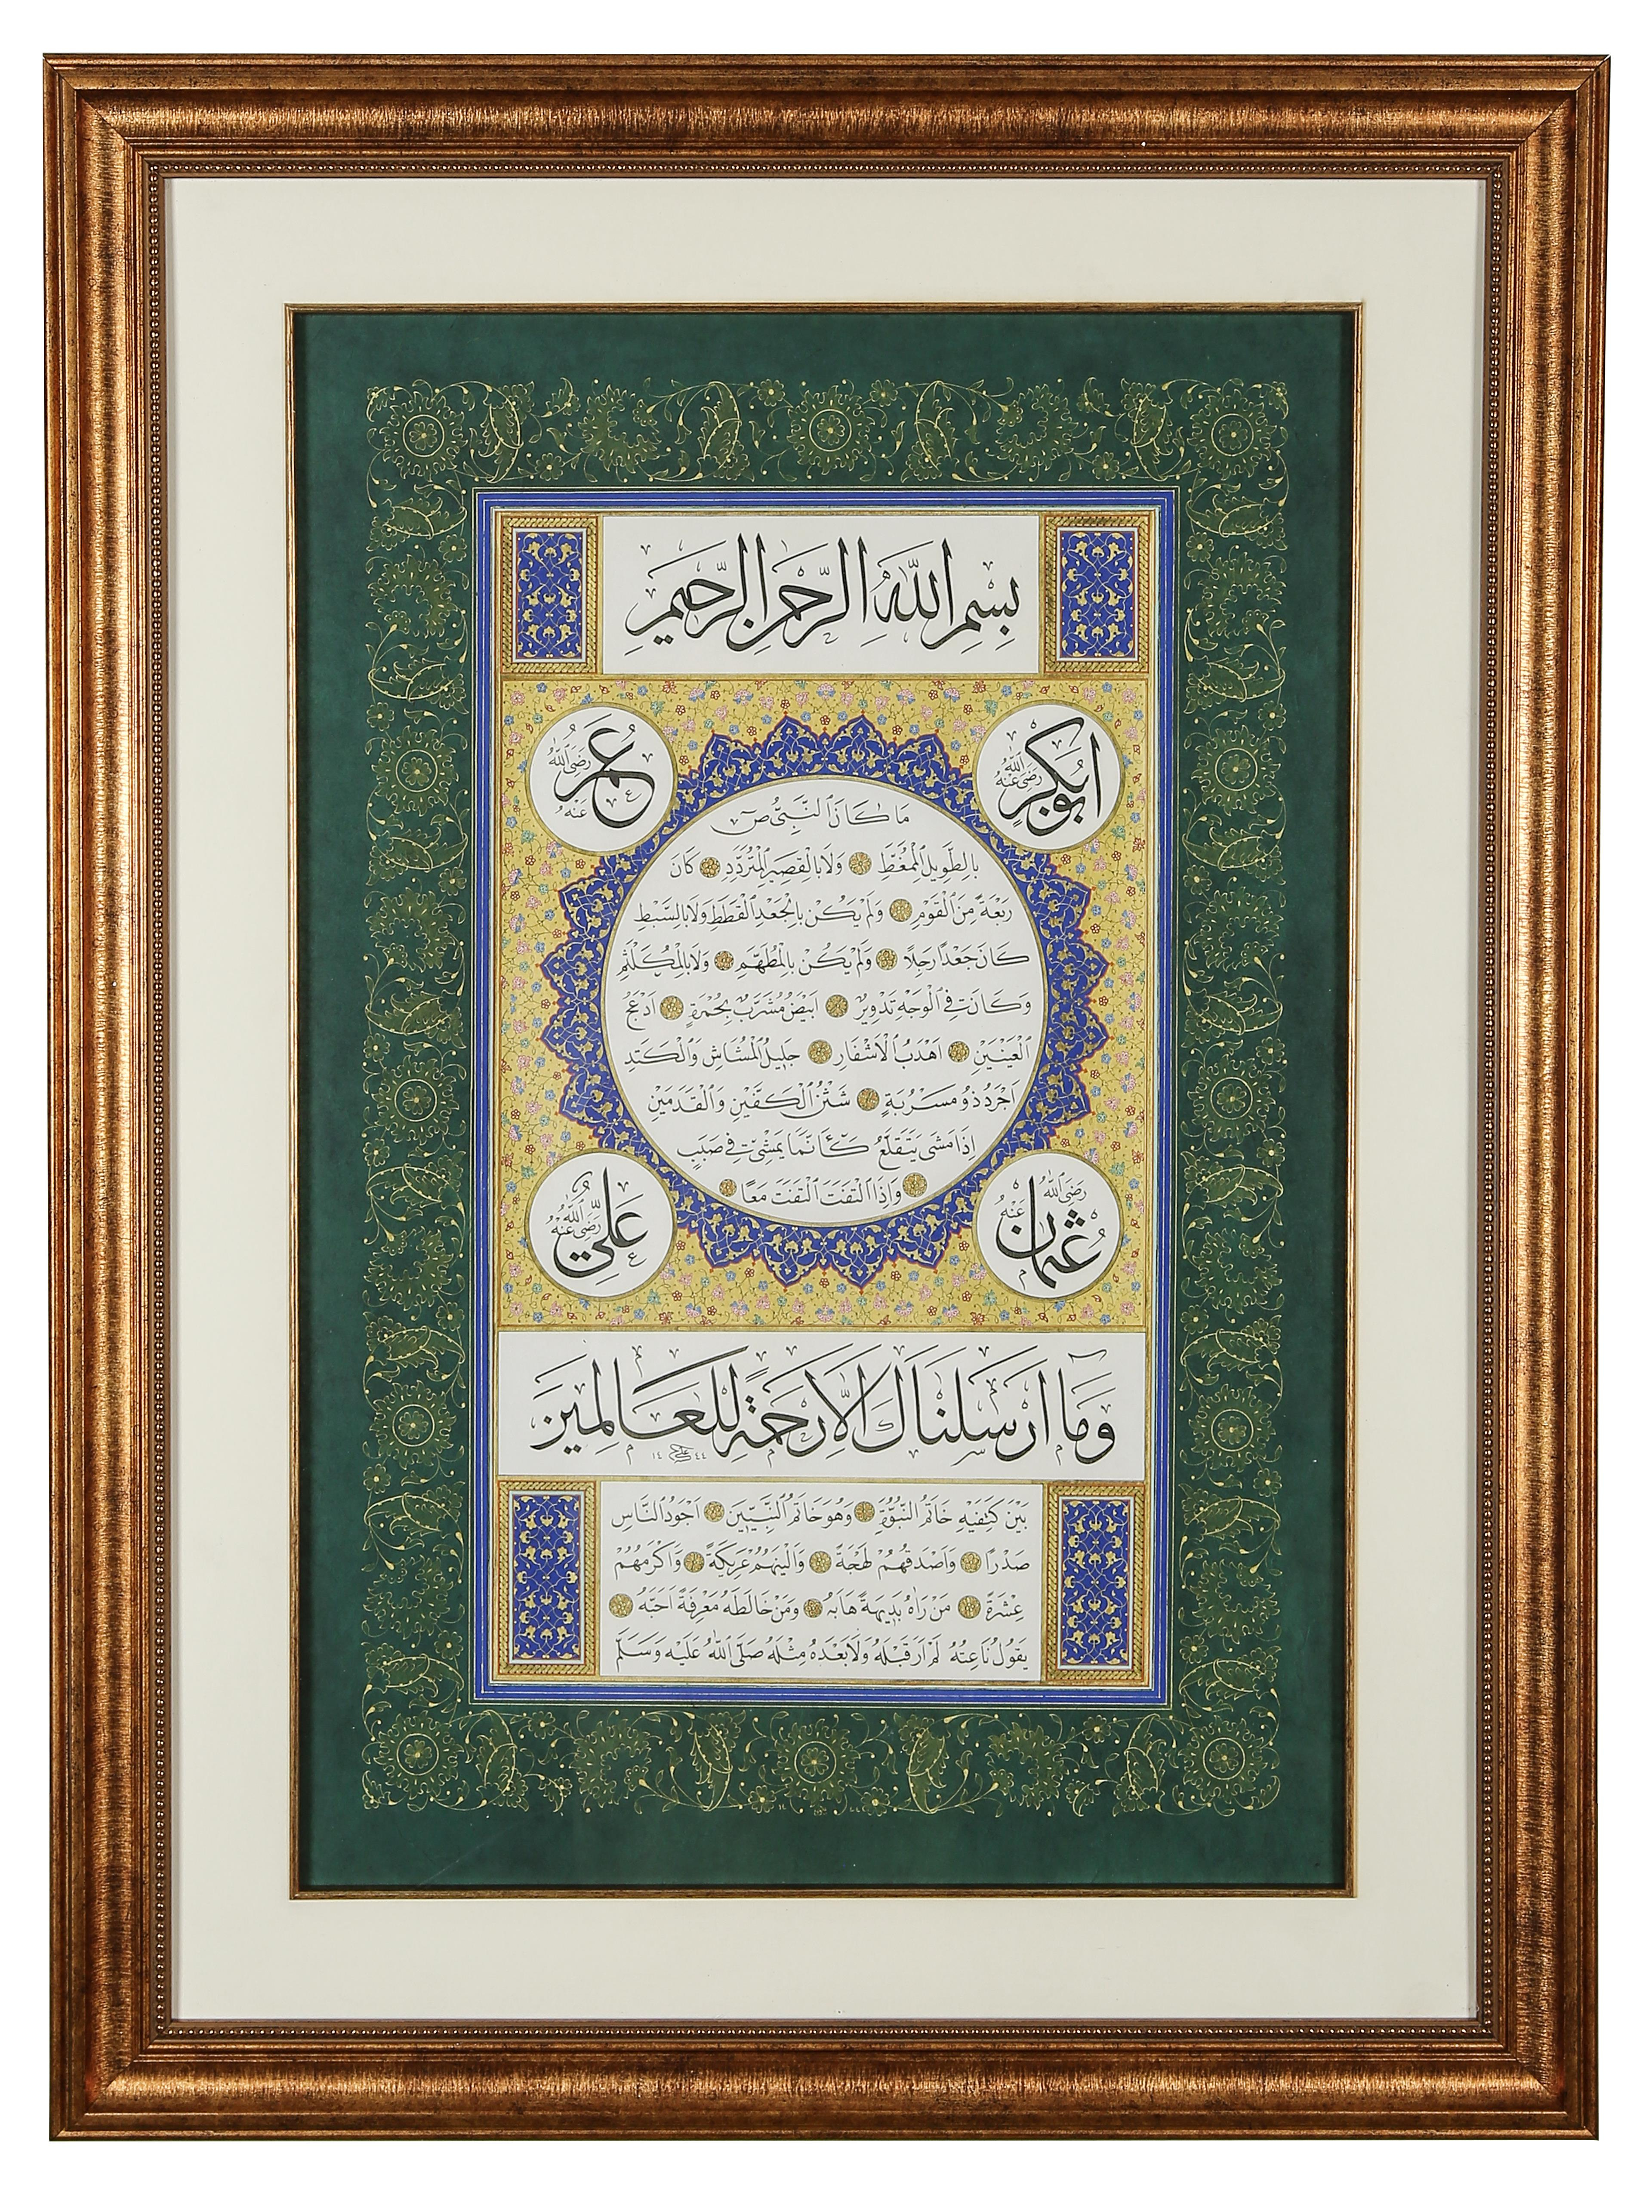 بِسْمِ اللَّهِ الرَّحْمٰنِ الرَّحِيمِ
ابُو بَكْرٍ رَضِيَ اللَّهُ عَنْهُ
عُمَرُ رَضِيَ اللَّهُ عَنْهُ
مَا كَانَ النَّبِيُّ ص
بِالطَّوِيلِ الْمُمَّغِطِ وَلَا بِالْقَصِيرِ الْمُتَرَدِّدِ كَانَ
رَبْعَةً مِنَ الْقَوْمِ وَلَمْ يَكُنْ بِالْجَعْدِ الْقَطَطِ وَلَا بِالسَّبْطِ
كَانَ جَعْدًا رَجِلًا وَلَمْ يَكُنْ بِالْمُطَهَّمِ وَلَا بِالْمُكَلْثَمِ
وَكَانَتْ فِي الْوَجْهِ تَدْوِيرٌ ابْيَضُ مُشْرَبٌ بِحُمْرَةٍ ادْعَجُ
الْعَيْنَيْنِ اهْدَبُ الْاشْفَارِ جَلِيلُ الْمُشَاشِ وَالْكَتَدِ
اجْرَدُ ذُو مَسْرُبَةٍ شَثْنُ الْكَفَّيْنِ وَالْقَدَمَيْنِ
اِذَا مَشَى يَتَقَلَّعُ كَأَنَّمَا يَمْشِي فِي صَبَبٍ
وَاِذَا الْتَفَتَ الْتَفَتَ مَعًا
عُثْمَانُ رَضِيَ اللَّهُ عَنْهُ
عَلِيٌّ رَضِيَ اللَّهُ عَنْهُ
وَمَا ارْسَلْنَاكَ اِلَّا رَحْمَةً لِلْعَالَمِينَ
١٤٤٤
بَيْنَ كَتِفَيْهِ خَاتَمُ النُّبُوَّةِ وَهُوَ خَاتَمُ النَّبِيِّينَ اجْوَدُ النَّاسِ
صَدْرًا وَاصْدَقُهُمْ لَهْجَةً وَالْيَنُهُمْ عَرِيكَةً وَاكْرَمُهُمْ
عِشْرَةً مَنْ رَاٰهُ بَدِيهَةً هَابَهُ وَمَنْ خَالَطَهُ مَعْرِفَةً احَبَّهُ
يَقُولُ نَاعِتُهُ لَمْ ارَ قَبْلَهُ وَلَا بَعْدَهُ مِثْلَهُ صَلَّى اللَّهُ عَلَيْهِ وَسَلَّمَ